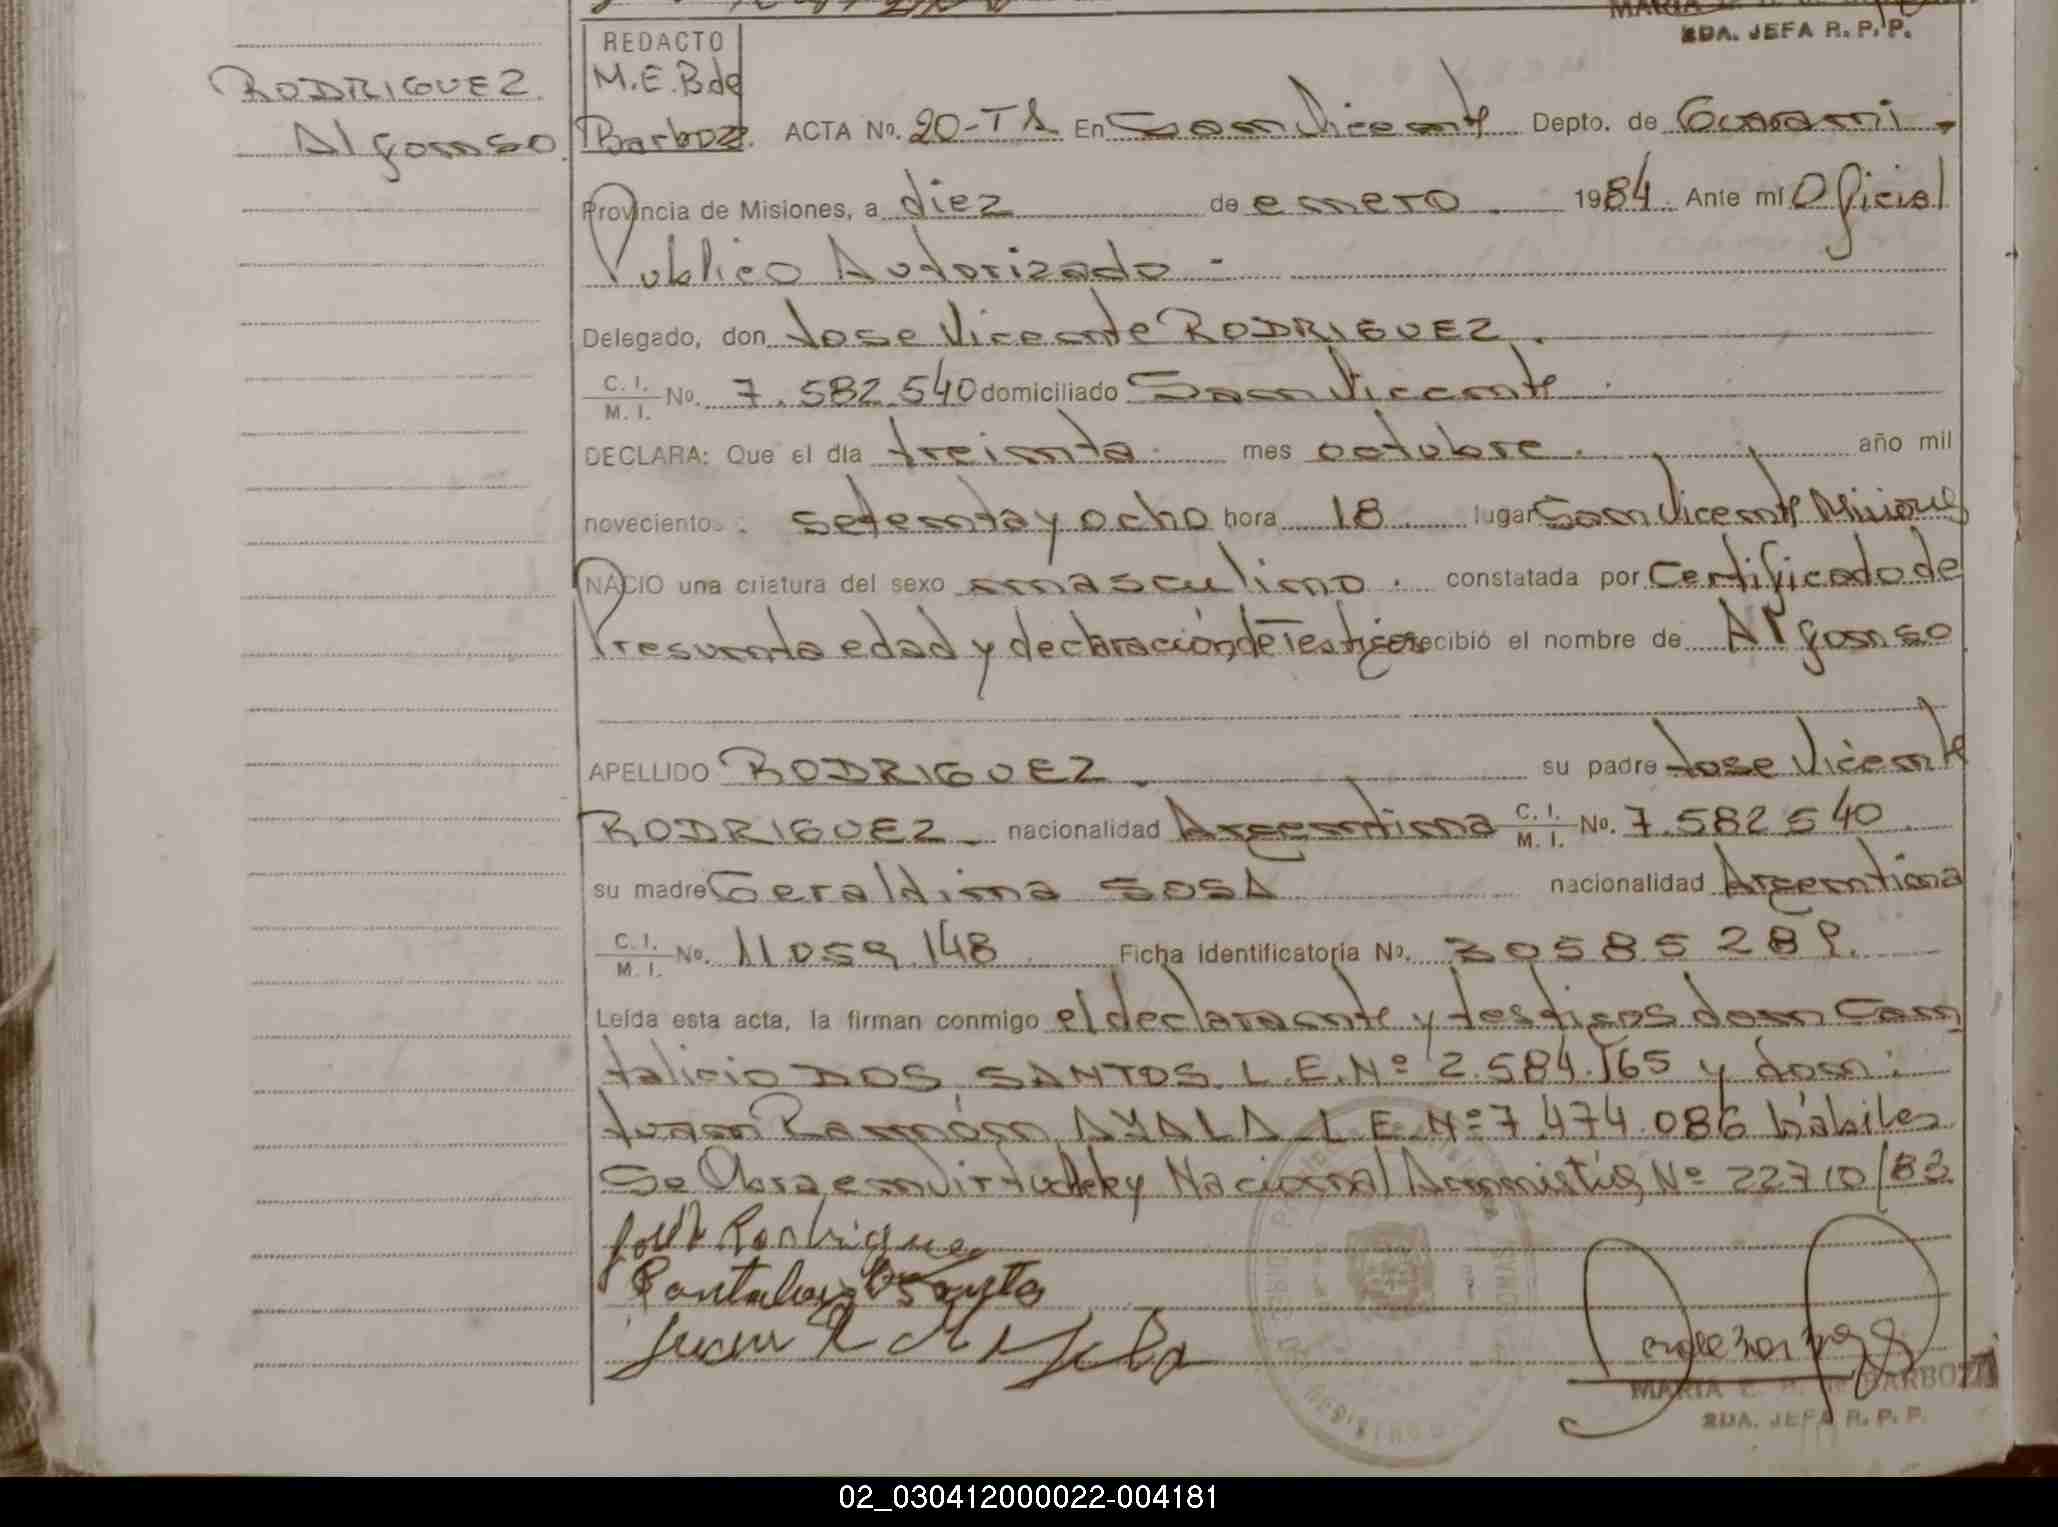 2DA. JEFA R. P. P.
REDACTO
M.E.B de
Barboza.
RODRIGUEZ
Alfonso.
ACTA No. 20-T1 En San Vicente Depto. de Guarani.
Provincia de Misiones, a diez de enero 1984. Ante mí Oficial
Publico Autorizado -
Delegado, don Jose Vicente RODRIGUEZ.
C. I. / M. I. No. 7.582.540 domiciliado San Vicente.
DECLARA: Que el día treinta mes octubre. año mil
noveciento. setenta y ocho hora 18 lugar San Vicente Misiones
NACIO una criatura del sexo masculino. constatada por Certificado de
Presunta edad y declaración de Testigos recibió el nombre de Alfonso
APELLIDO RODRIGUEZ. su padre Jose Vicente
RODRIGUEZ. nacionalidad Argentina C. I. / M. I. No. 7.582 540
su madre Geraldina SOSA nacionalidad Argentina
C. I. / M. I. No. 11.059.148 Ficha identificatoria No. 30585289.
Leída esta acta, la firman conmigo el declarante y testigos don Can
talicio DOS SANTOS. L.E.Nº 2.584.165 y don:
Juan Ramón AYALA L E Nº 7.474.086 hábiles
Se Obra en virtud Ley Nacional Amnistía Nº 22710/83
José V Rodriguez
MARIA E. B. de BARBOZA
2DA. JEFA R. P. P.
02_030412000022-004181